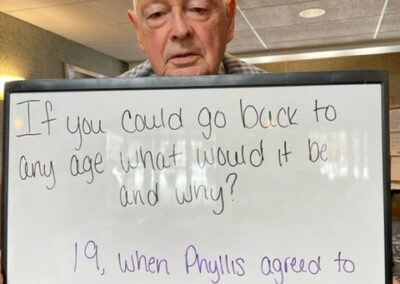 If you could go back to
any age what would it be
and why?
19, when Phyllis agreed to